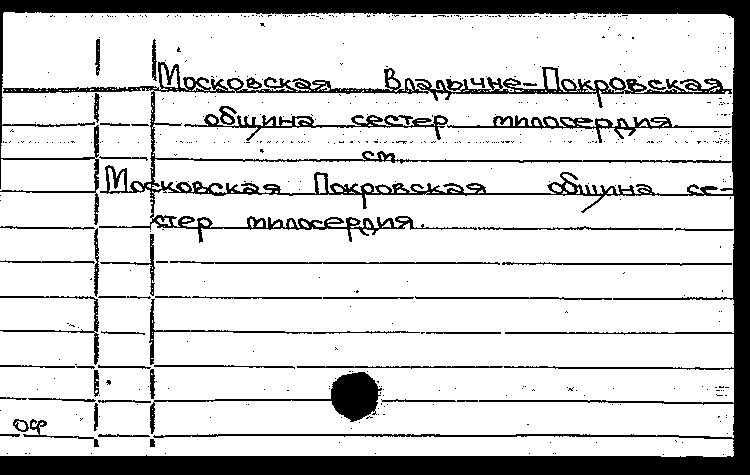 Московская Владычне-Покровская
община сестер милосердия
см.
Московская Покровская община се-
стер милосердия.
ОФ